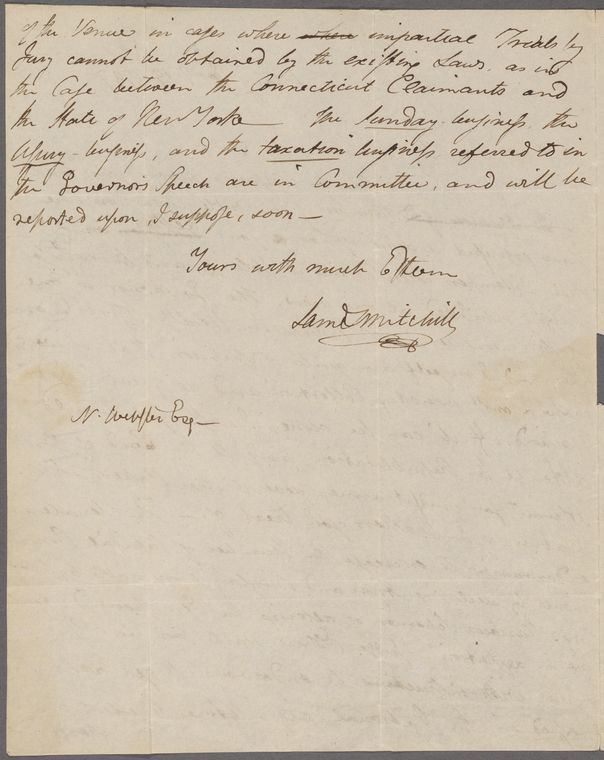 of the Venue in cases where where impartial Trials by
Jury cannot be obtained by the existing Laws. as in
the Case between the Connecticut Claimants and
the State of New York — The Sunday-business, the
Usury-business, and the taxation business referred to in
the Governor's Speech are in Committee, and will be
reported upon, I suppose, soon —
Yours with much Esteem
Saml Mitchill
N. Webster Esq —